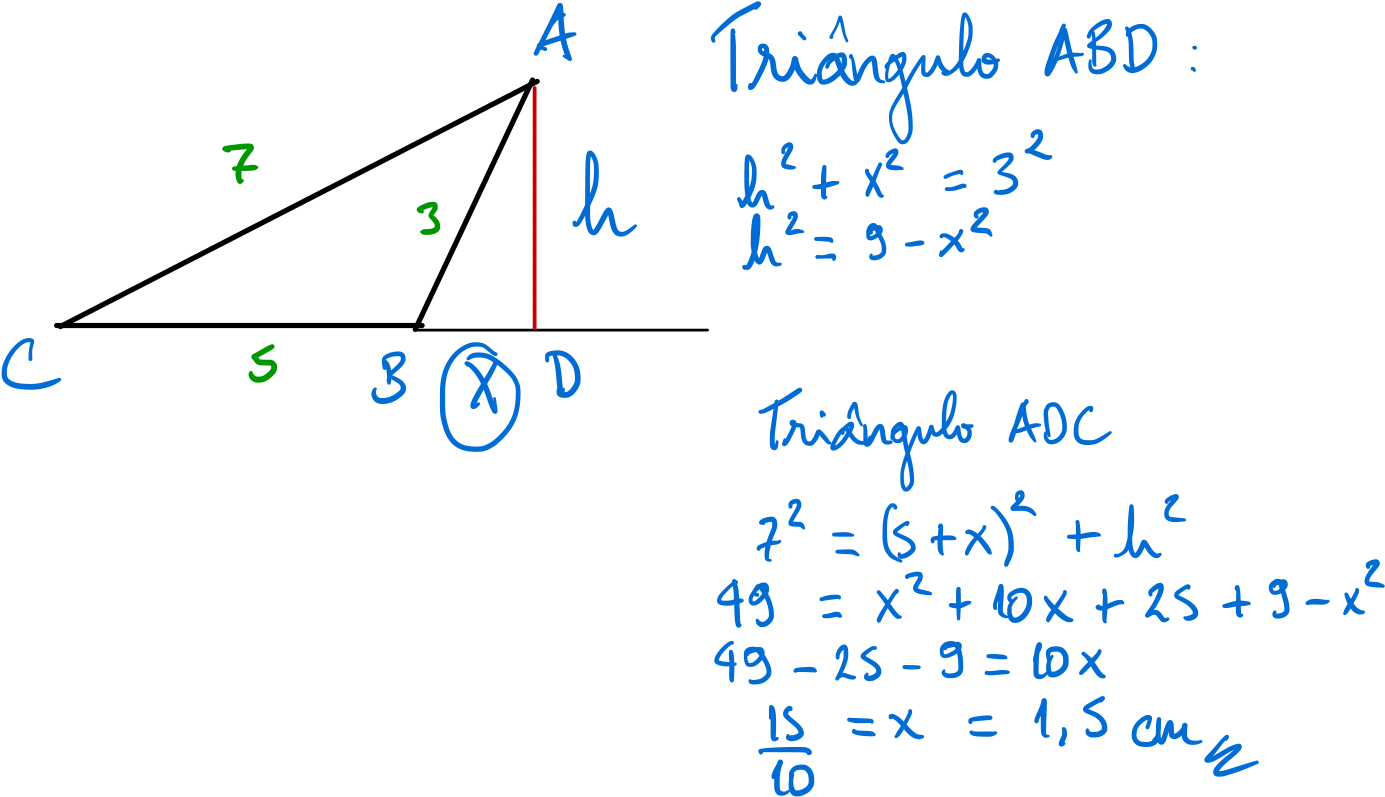 A
Triângulo ABD :
7
3
h
h² + x² = 3²
h² = 9 - x²
C
5
B
X
D
Triângulo ADC
7² = (5+x)² + h²
49 = x² + 10x + 25 + 9 - x²
49 - 25 - 9 = 10x
15/10 = x = 1,5 cm